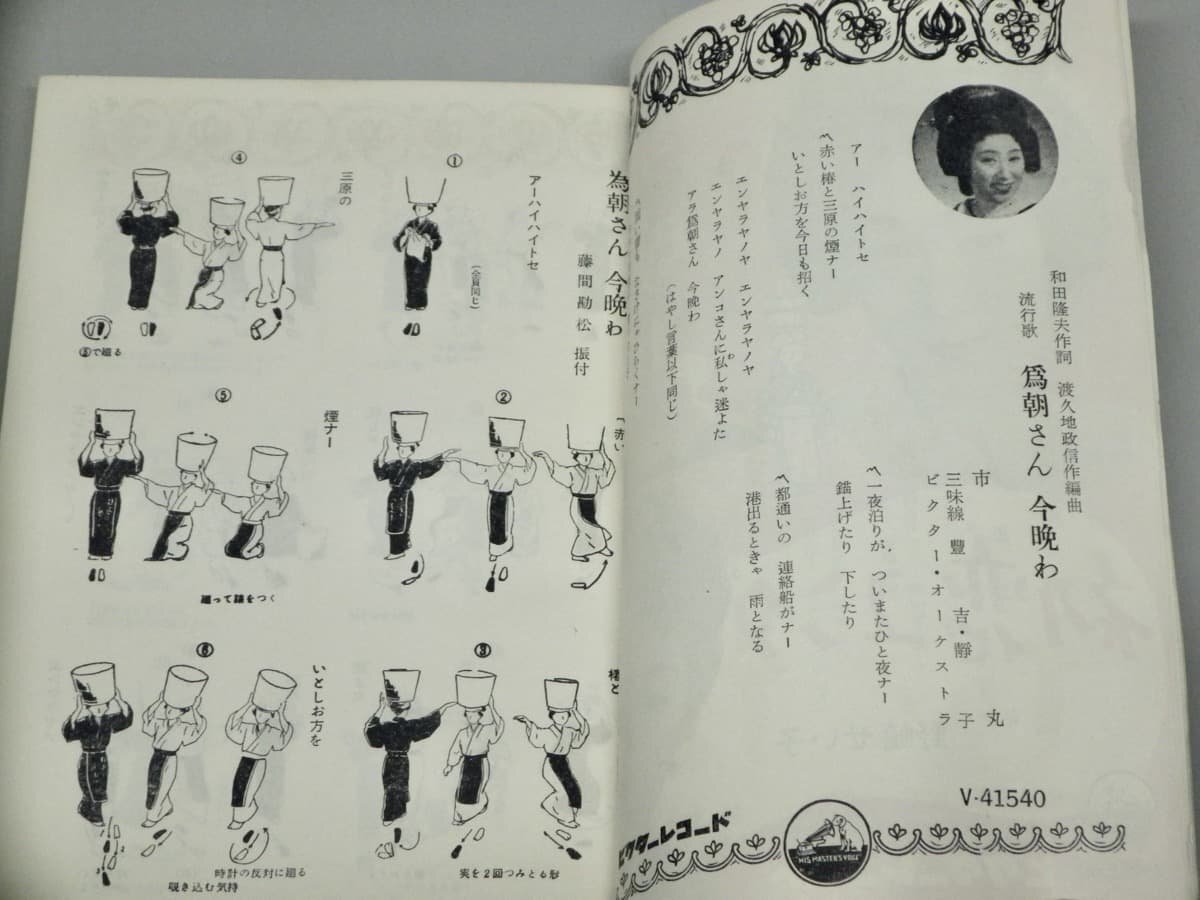 和田隆夫作詞　渡久地政信作編曲
流行歌　爲朝さん 今晩わ
市丸
三味線　豐吉・靜子
ビクター・オーケストラ
アー　ハイハイトセ
〽赤い椿と三原の煙ナー
いとしお方を今日も招く
エンヤラヤノヤ　エンヤラヤノヤ
エンヤラヤノ　アンコさんに私しゃ迷よた
わ
アラ爲朝さん　今晩わ
（はやし言葉以下同じ）
〽一夜泊りが　ついまたひと夜ナー
錨上げたり　下したり
〽都通いの　連絡船がナー
港出るときゃ　雨となる
V-41540
ビクターレコード
HIS MASTER'S VOICE
為朝さん 今晩わ
藤間勘松 振付
①
アーハイハイトセ
（全員同じ）
②
「赤い
③
椿と
実を2回つみとる形
④
三原の
⑤で廻る
⑤
煙ナー
廻って膝をつく
⑥
いとしお方を
時計の反対に廻る
覗き込む気持